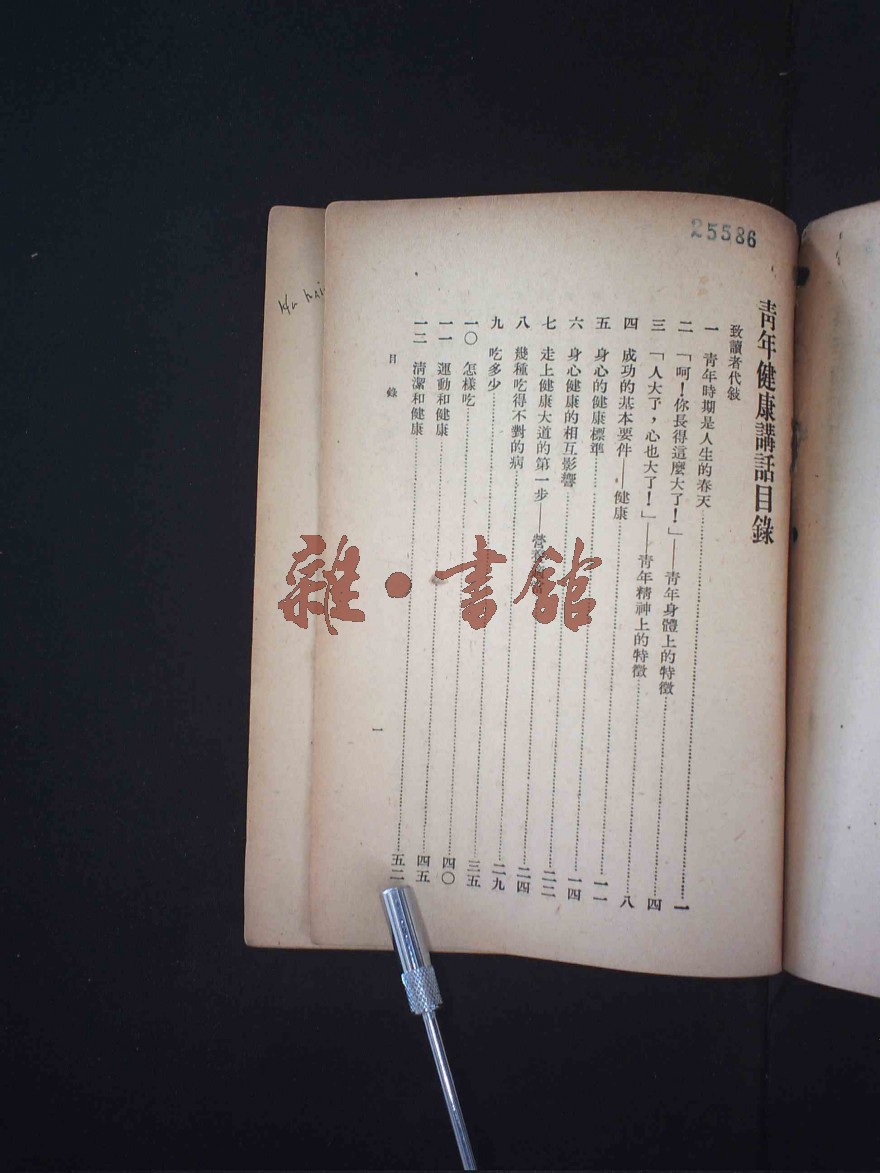 25586
青年健康講話目錄
致讀者代敍
一 青年時期是人生的春天……一
二 「呵！你長得這麼大了！」——青年身體上的特徵……四
三 「人大了，心也大了！」——青年精神上的特徵……八
四 成功的基本要件——健康……一一
五 身心的健康標準……一四
六 身心健康的相互影響……二二
七 走上健康大道的第一步——營……二四
八 幾種吃得不對的病……二九
九 吃多少……三五
一〇 怎樣吃……四〇
一一 運動和健康……四五
一二 清潔和健康……五二
目錄
一
雜·書館